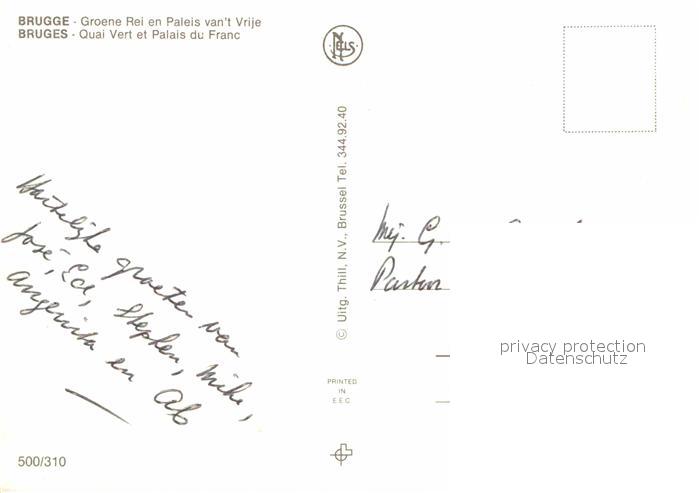 BRUGGE - Groene Rei en Paleis van't Vrije
BRUGES - Quai Vert et Palais du Franc
NELS
Hartelijke groeten van
José, Ed, Stephen, Mike,
Angenita en Ab
© Uitg. Thill, N.V., Brussel Tel. 344.92.40
Mej. G.
PRINTED
IN
E.E.C.
500/310
privacy protection
Datenschutz